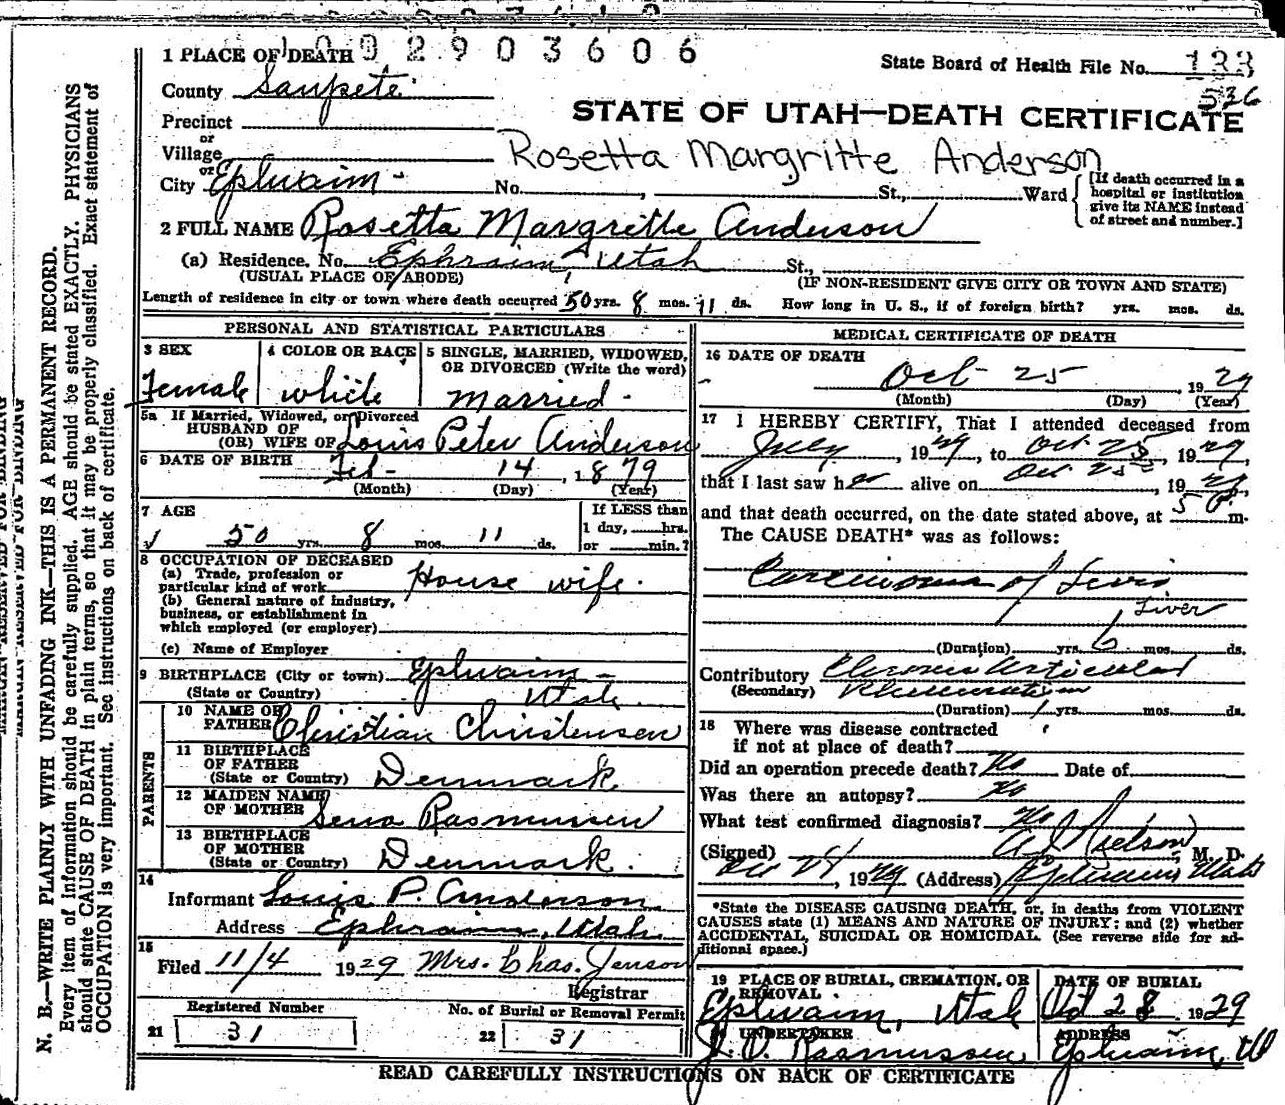 1 PLACE OF DEATH 1 0 0 2 9 0 3 6 0 6
State Board of Health File No. 133
536
County Sanpete
STATE OF UTAH—DEATH CERTIFICATE
Precinct
or
Village
Rosetta Margritte Anderson
or
City Ephraim No. , St., Ward
[If death occurred in a
hospital or institution
give its NAME instead
of street and number.]
2 FULL NAME Rosetta Margritte Anderson
(a) Residence. No. Ephraim, Utah St.,
(USUAL PLACE OF ABODE) (IF NON-RESIDENT GIVE CITY OR TOWN AND STATE)
Length of residence in city or town where death occurred 50 yrs. 8 mos. 11 ds. How long in U. S., if of foreign birth? yrs. mos. ds.
PERSONAL AND STATISTICAL PARTICULARS
3 SEX
Female
4 COLOR OR RACE
white
5 SINGLE, MARRIED, WIDOWED,
OR DIVORCED (Write the word)
Married
5a If Married, Widowed, or Divorced
HUSBAND OF
(OR) WIFE OF Louis Peter Anderson
6 DATE OF BIRTH Feb- 14, 1879
(Month) (Day) (Year)
7 AGE
50 yrs. 8 mos. 11 ds.
If LESS than
1 day, hrs.
or min.?
8 OCCUPATION OF DECEASED
(a) Trade, profession or
particular kind of work House wife.
(b) General nature of industry,
business, or establishment in
which employed (or employer)
(c) Name of Employer
9 BIRTHPLACE (City or town) Ephraim -
(State or Country) Utah.
PARENTS
10 NAME OF
FATHER Christian Christensen
11 BIRTHPLACE
OF FATHER
(State or Country) Denmark
12 MAIDEN NAME
OF MOTHER Sena Rasmussen
13 BIRTHPLACE
OF MOTHER
(State or Country) Denmark.
14
Informant Louis P. Anderson
Address Ephraim, Utah
15
Filed 11/4 1929 Mrs. Chas. Jenson
Registrar
Registered Number
21 31
No. of Burial or Removal Permit
22 31
MEDICAL CERTIFICATE OF DEATH
16 DATE OF DEATH
Oct 25 1929
(Month) (Day) (Year)
17 I HEREBY CERTIFY, That I attended deceased from
July, 1929, to Oct 25, 1929,
that I last saw her alive on Oct 25, 1929,
and that death occurred, on the date stated above, at 5 P. m.
The CAUSE DEATH* was as follows:
Carcinoma of
Liver
(Duration) yrs. 6 mos. ds.
Contributory Articular
(Secondary) Rheumatism
(Duration) 1 yrs. mos. ds.
18 Where was disease contracted
if not at place of death?
Did an operation precede death? No Date of
Was there an autopsy? No
What test confirmed diagnosis? No
(Signed) A J Nielson, M. D.
1929 (Address) Ephraim Utah
*State the DISEASE CAUSING DEATH, or, in deaths from VIOLENT
CAUSES state (1) MEANS AND NATURE OF INJURY: and (2) whether
ACCIDENTAL, SUICIDAL OR HOMICIDAL. (See reverse side for ad-
ditional space.)
19 PLACE OF BURIAL, CREMATION, OR
REMOVAL
Ephraim, Utah
DATE OF BURIAL
Oct 28 1929
UNDERTAKER
Rasmussen
ADDRESS
Ephraim, Ut
READ CAREFULLY INSTRUCTIONS ON BACK OF CERTIFICATE
N. B.—WRITE PLAINLY WITH UNFADING INK—THIS IS A PERMANENT RECORD.
Every item of information should be carefully supplied. AGE should be stated EXACTLY. PHYSICIANS
should state CAUSE OF DEATH in plain terms, so that it may be properly classified. Exact statement of
OCCUPATION is very important. See instructions on back of certificate.